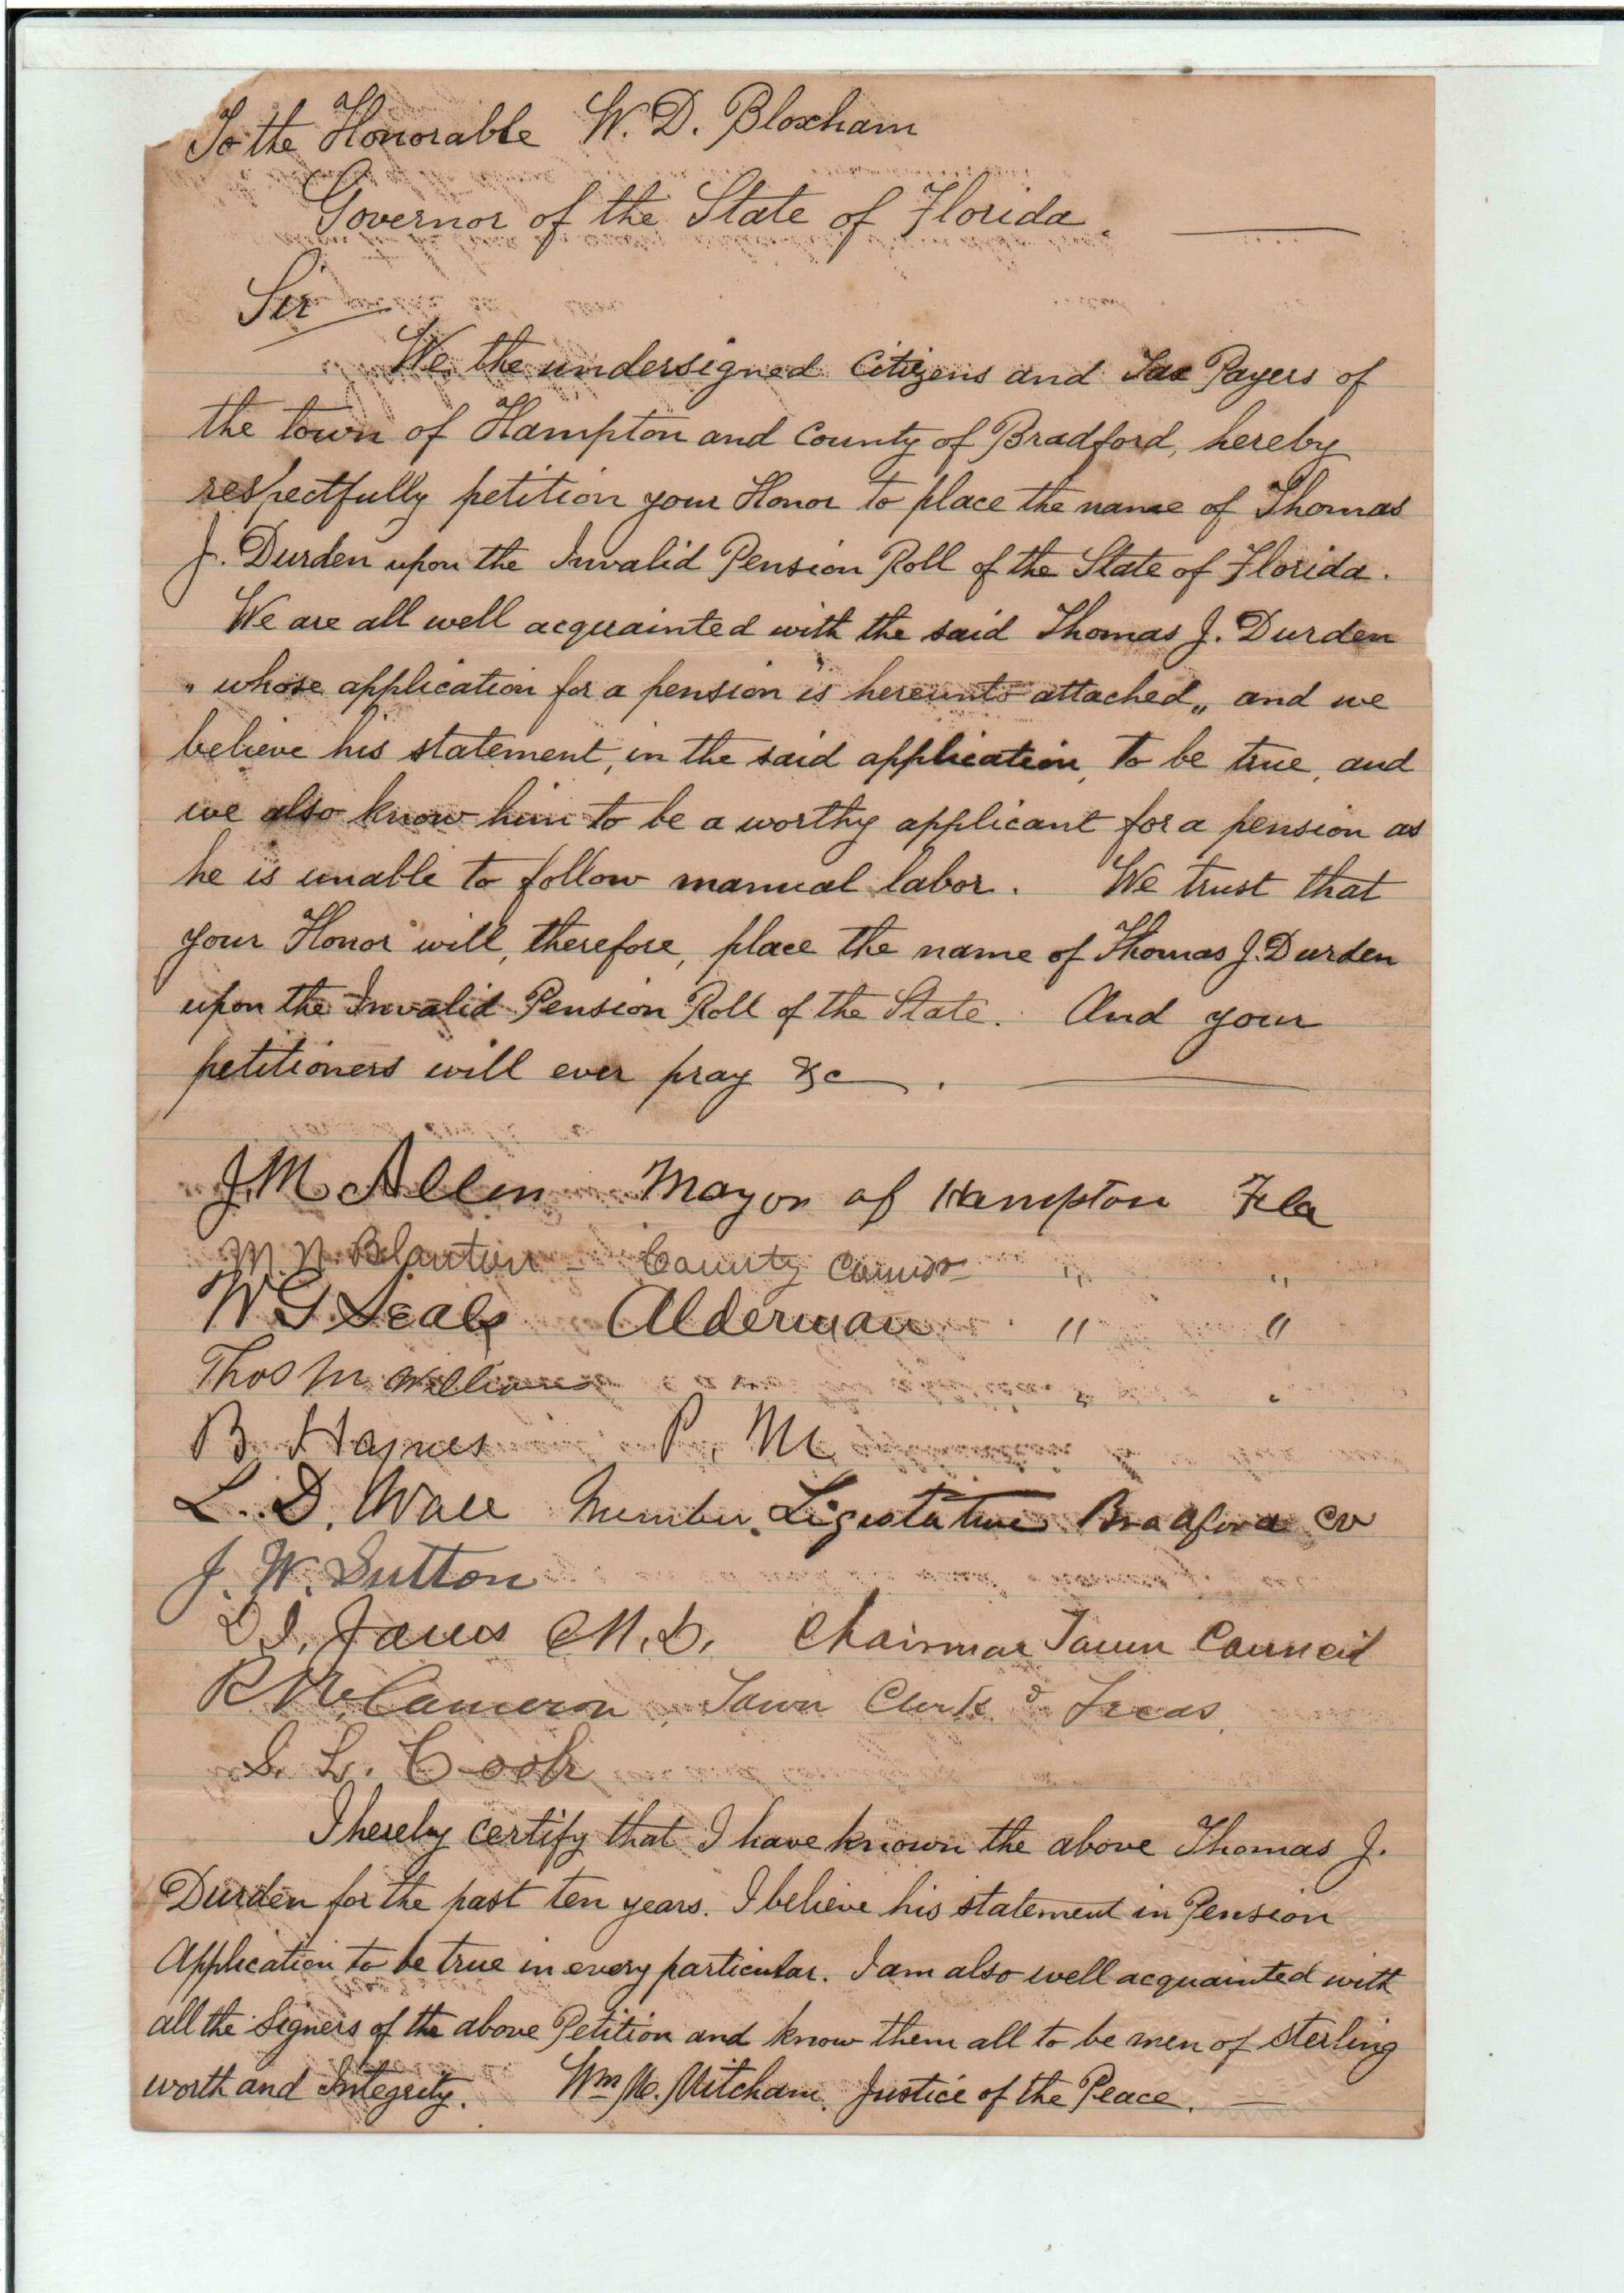 To the Honorable W. D. Bloxham
Governor of the State of Florida.
Sir
We, the undersigned Citizens and Tax Payers of
the town of Hampton and County of Bradford, hereby
respectfully petition your Honor to place the name of Thomas
J. Durden upon the Invalid Pension Roll of the State of Florida.
We are all well acquainted with the said Thomas J. Durden
„ whose application for a pension is hereunto attached„ and we
believe his statement, in the said application, to be true, and
we also know him to be a worthy applicant for a pension as
he is unable to follow manual labor. We trust that
your Honor will, therefore, place the name of Thomas J. Durden
upon the Invalid Pension Roll of the State. And your
petitioners will ever pray &c.
J. M. Allen Mayor of Hampton Fla
M. N. Blanton - County Commr " "
W G Seals Alderman " "
Thos M Williams " "
B. Haynes P. M
L. D. Wall Member Legistature Bradford co
J. W. Sutton
D. I. James M. D. Chairman Town Council
R. Cameron, Town Clerk & Treas.
L. Cook
I hereby certify that I have known the above Thomas J.
Durden for the past ten years. I believe his statement in Pension
Application to be true in every particular. I am also well acquainted with
all the signers of the above Petition and know them all to be men of sterling
worth and Integrity. Wm Mitcham. Justice of the Peace.